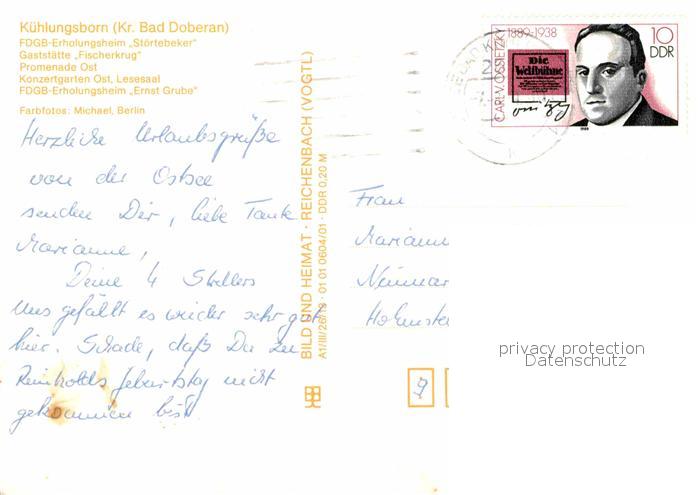 Kühlungsborn (Kr. Bad Doberan)
FDGB-Erholungsheim „Störtebeker"
Gaststätte „Fischerkrug"
Promenade Ost
Konzertgarten Ost, Lesesaal
FDGB-Erholungsheim „Ernst Grube"
Farbfotos: Michael, Berlin
Herzliche Urlaubsgrüße
von der Ostsee
senden Dir, liebe Tante
Marianne,
Deine 4
Uns gefällt es wieder sehr gut
hier. Schade, daß Du zu
Reinholds Geburtstag nicht
gekommen bist.
BILD UND HEIMAT · REICHENBACH (VOGTL)
A1/III/26/13 · 01 01 0604/01 · DDR 0,20 M
CARL V. OSSIETZKY
1889-1938
10
DDR
Die
Weltbühne
Frau
Mariann
Neumar
9
privacy protection
Datenschutz